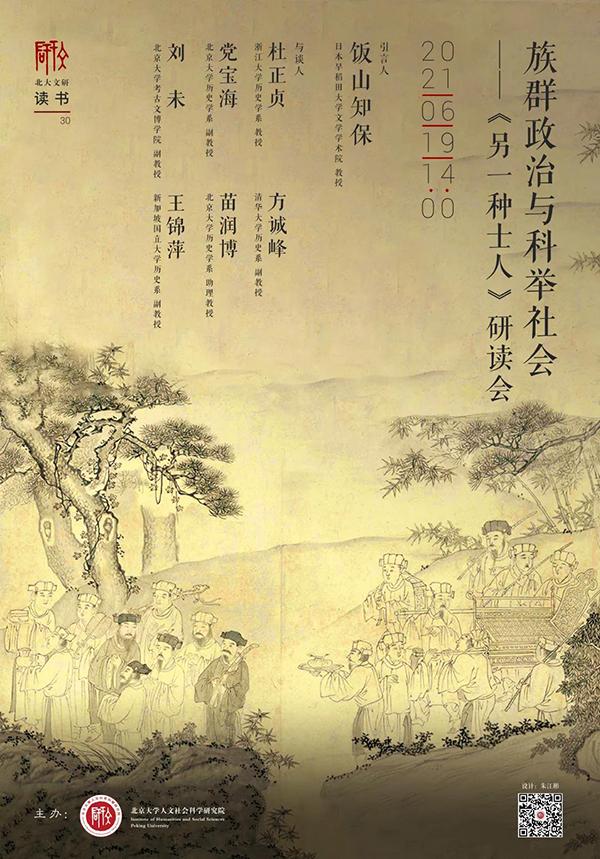 族群政治与科举社会
——《另一种士人》研读会
20
21
06
19
14:
00
引言人
饭山知保
日本早稻田大学文学学术院 教授
与谈人
杜正贞
浙江大学历史学系 教授
方诚峰
清华大学历史系 副教授
党宝海
北京大学历史学系 副教授
苗润博
北京大学历史学系 助理教授
刘未
北京大学考古文博学院 副教授
王锦萍
新加坡国立大学历史系 副教授
北大文研
读书
30
主办:
北京大学人文社会科学研究院
Institute of Humanities and Social Sciences
Peking University